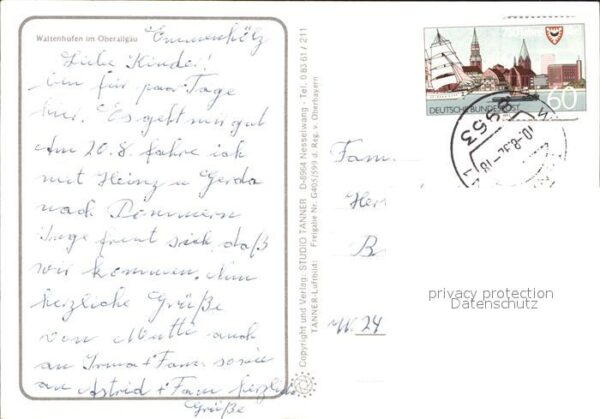 Waltenhofen im Oberallgäu
Liebe Kinder!
Bin für paar Tage
hier. Es geht mir gut
Am 20.8. fahre ich
mit Heinz u Gerda
nach Pommern
Inge freut sich, daß
wir kommen. Nun
herzliche Grüße
von Mutti auch
an Irma + Fam. sowie
an Astrid + Fam herzlich
Grüße
Copyright und Verlag: STUDIO TANNER D-8964 Nesselwang · Tel. 0 83 61 / 211
TANNER-Luftbild: Freigabe Nr. G405/599 d. Reg. v. Oberbayern
DEUTSCHE BUNDESPOST
60
Fam.
Her
B
W. 24
privacy protection
Datenschutz